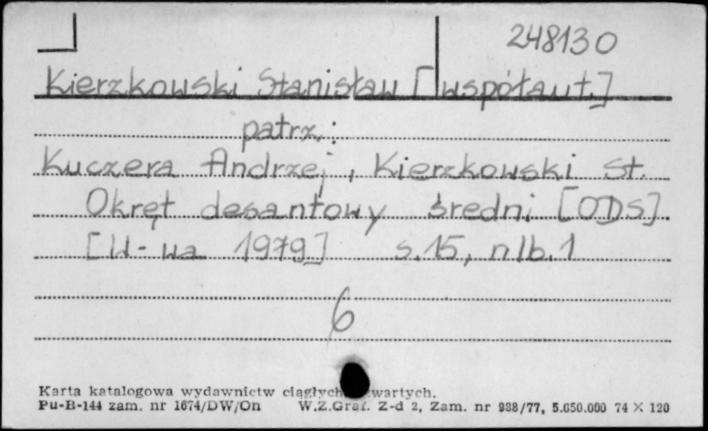 248130
Kierzkowski Stanisław [współaut.]
patrz:
Kuczera Andrzej, Kierzkowski St.
Okręt desantowy średni [ODS]
[W-wa 1979] s.15, nlb.1
6
Karta katalogowa wydawnictw ciągłych
Pu-B-144 zam. nr 1674/DW/On W.Z.Graf. Z-d 2, Zam. nr 988/77, 5.050.000 74 × 120